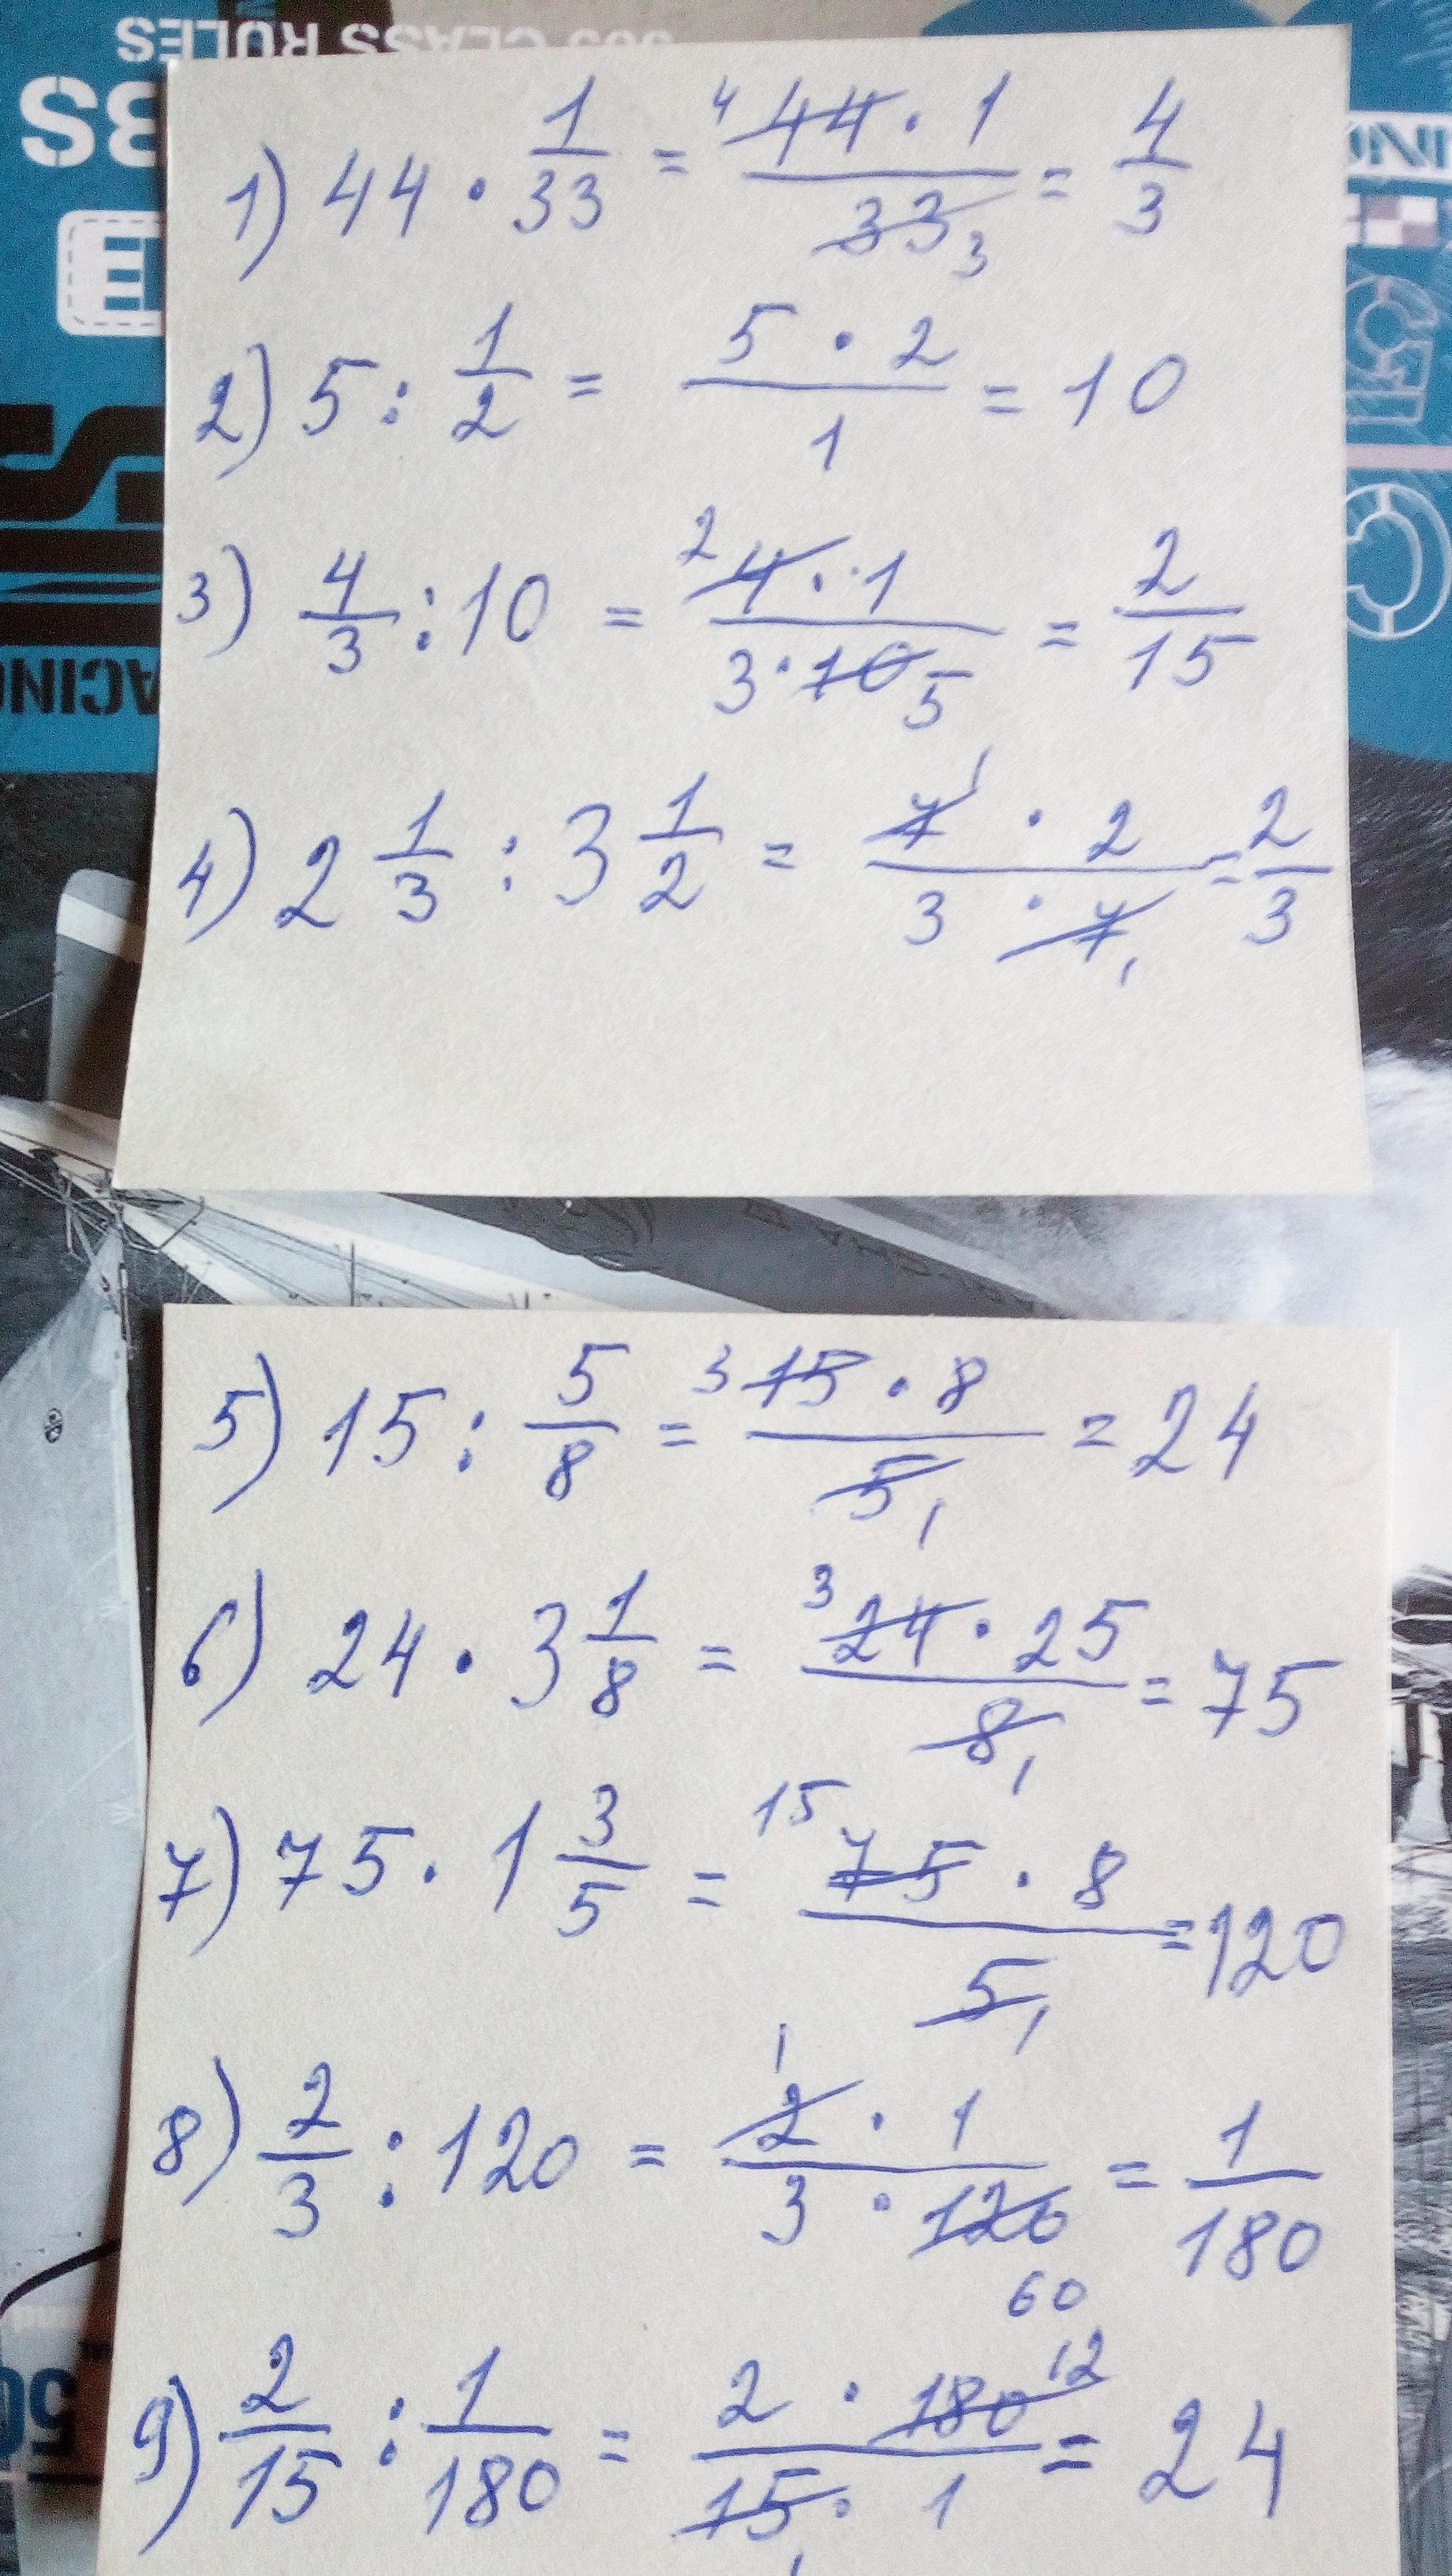 505 CLASS RULES
1) 44 · 1/33 = 4 44 · 1 / 33 3 = 4/3
2) 5 : 1/2 = 5 · 2 / 1 = 10
3) 4/3 : 10 = 2 4 · 1 / 3 · 10 5 = 2/15
4) 2 1/3 : 3 1/2 = 7 1 · 2 / 3 · 7 1 = 2/3
5) 15 : 5/8 = 3 15 · 8 / 5 1 = 24
6) 24 · 3 1/8 = 3 24 · 25 / 8 1 = 75
7) 75 · 1 3/5 = 15 75 · 8 / 5 1 = 120
8) 2/3 : 120 = 1 2 · 1 / 3 · 120 60 = 1/180
9) 2/15 : 1/180 = 2 · 180 12 / 15 1 · 1 = 24
50